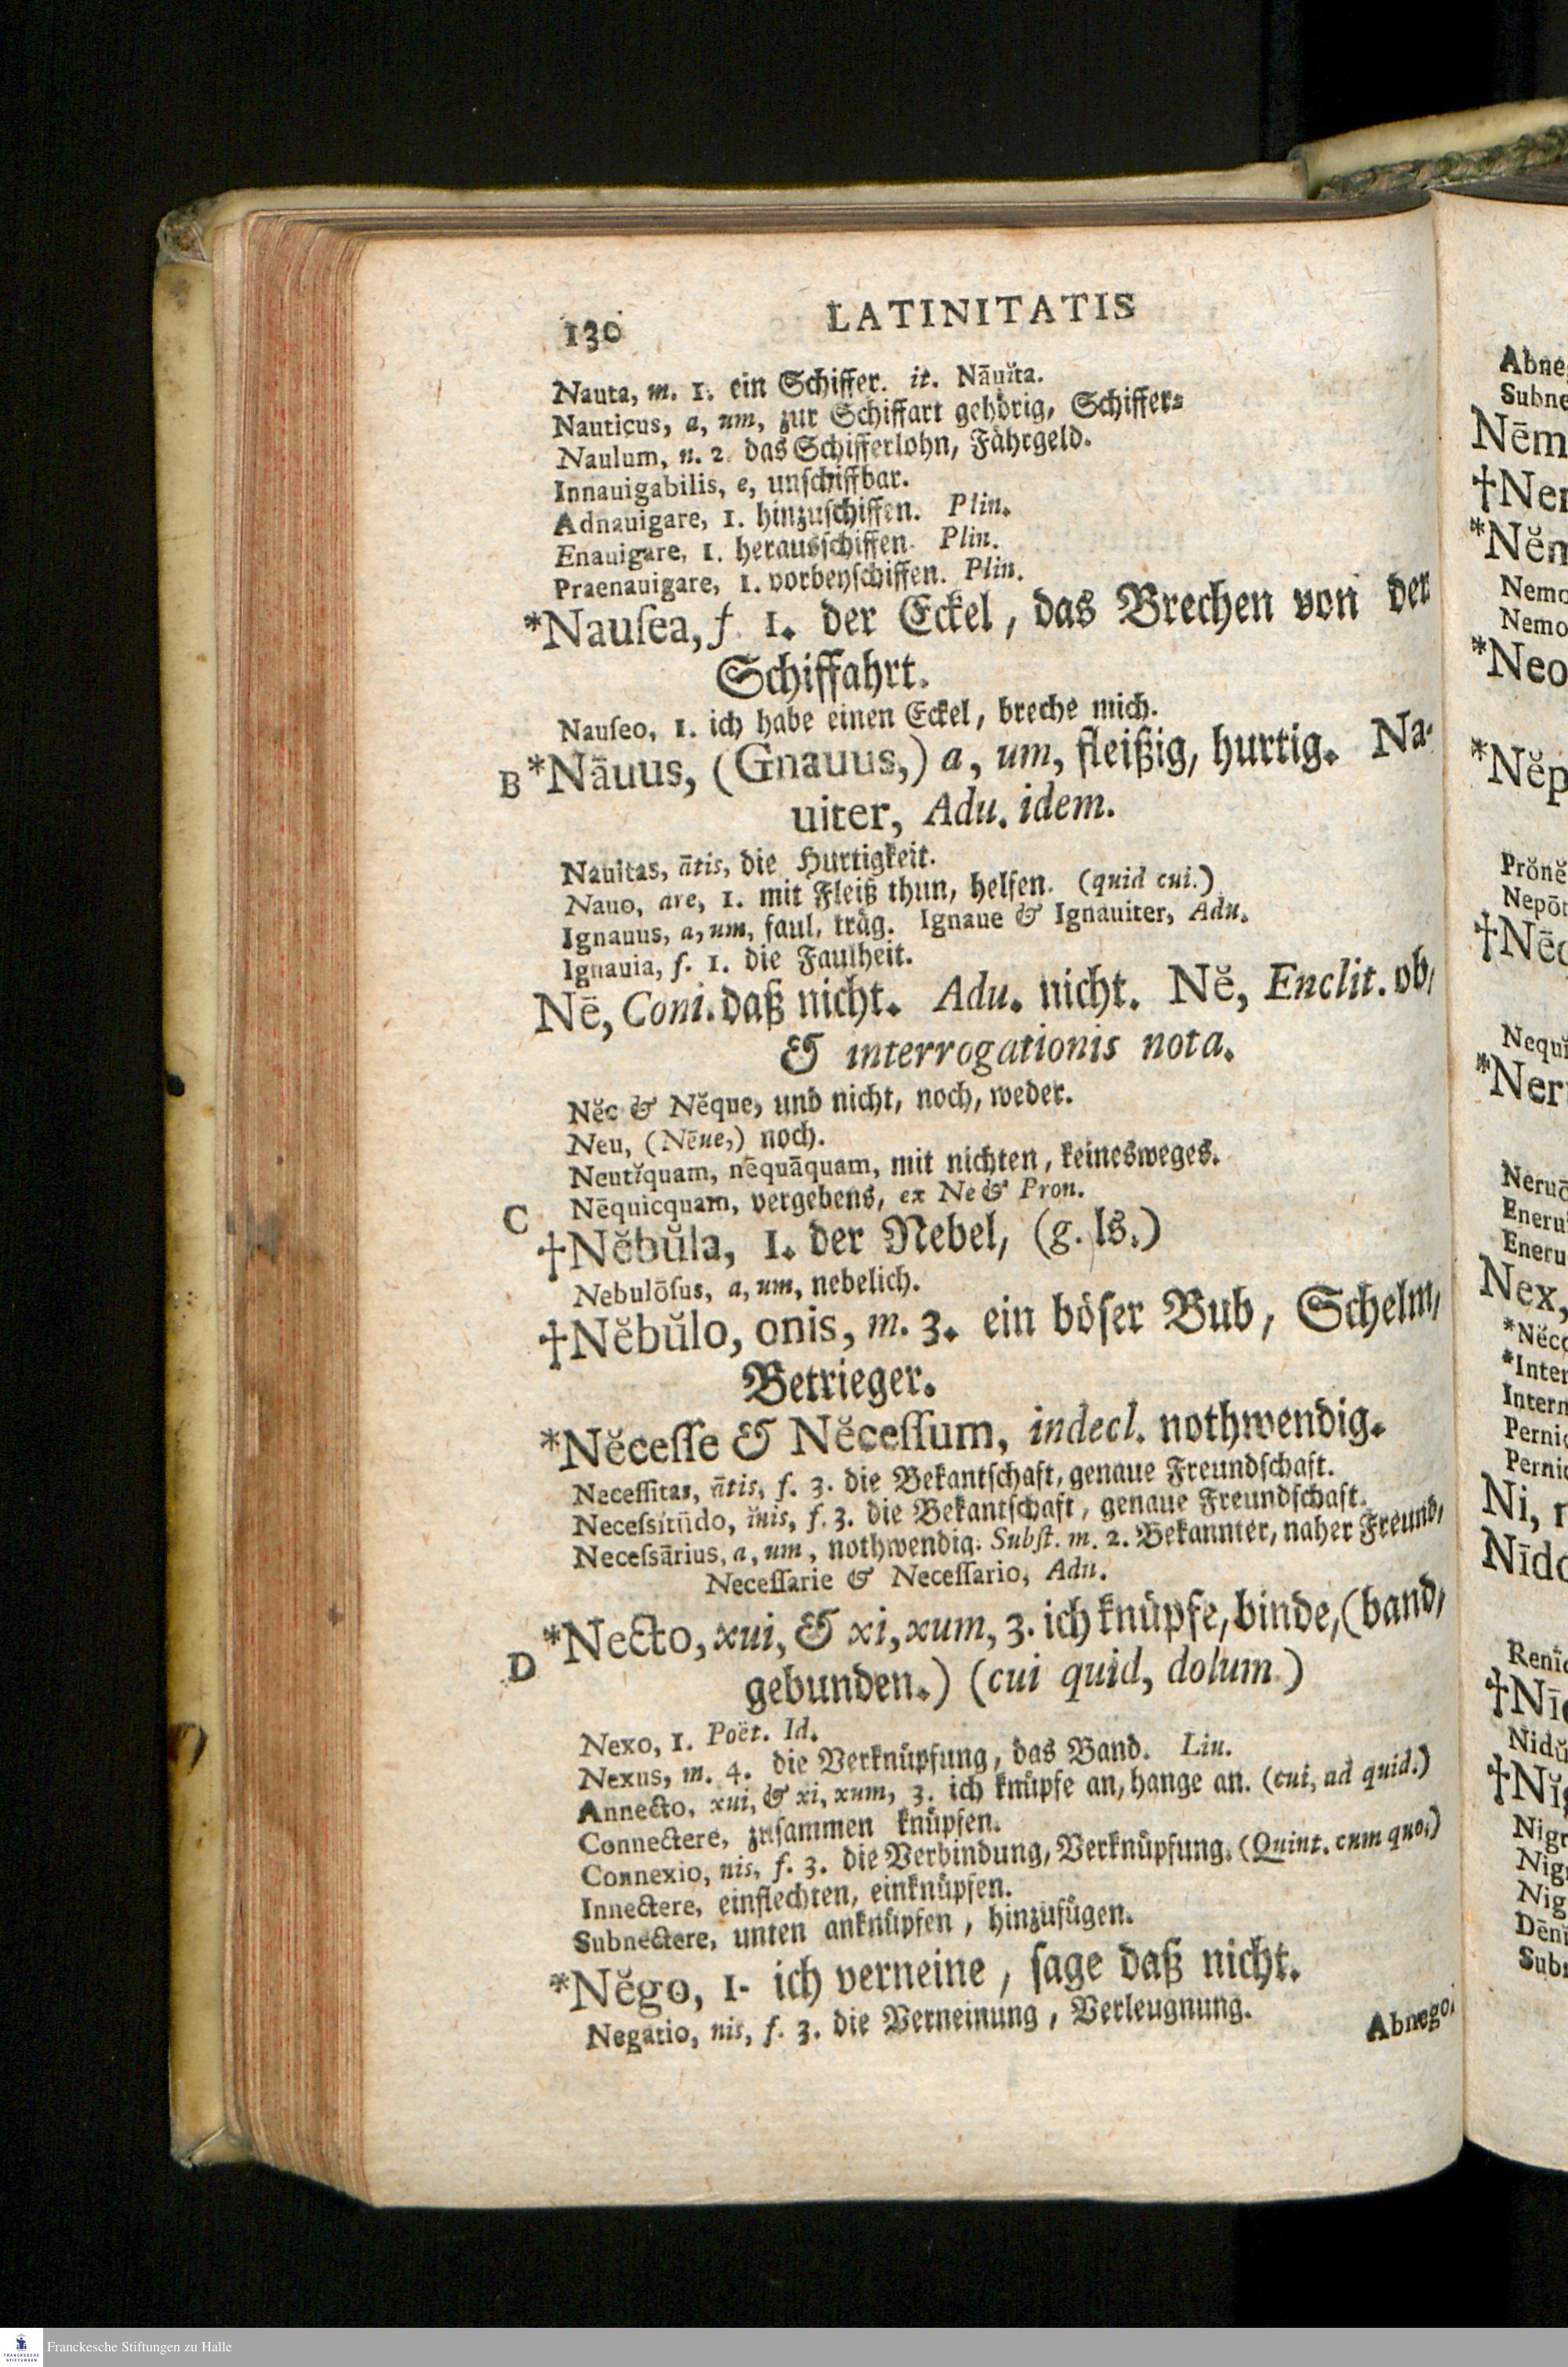 130 LATINITATIS
Nauta, m. 1. ein Schiffer. it. Nāuĭta.
Nauticus, a, um, zur Schiffart gehörig, Schiffer⸗
Naulum, n. 2. das Schifferlohn, Fährgeld.
Innauigabilis, e, unschiffbar.
Adnauigare, 1. hinzuschiffen. Plin.
Enauigare, 1. herausschiffen. Plin.
Praenauigare, 1. vorbeyschiffen. Plin.
*Nauſea, f. 1. der Eckel, das Brechen von der
Schiffahrt.
Nauſeo, 1. ich habe einen Eckel, breche mich.
B *Nāuus, (Gnauus,) a, um, fleißig, hurtig. Na-
uiter, Adu. idem.
Nauitas, ātis, die Hurtigkeit.
Nauo, are, 1. mit Fleiß thun, helfen. (quid cui.)
Ignauus, a, um, faul, träg. Ignaue & Ignauiter, Adu.
Ignauia, f. 1. die Faulheit.
Nē, Coni. daß nicht. Adu. nicht. Nĕ, Enclit. ob/
& interrogationis nota.
Nĕc & Nĕque, und nicht, noch, weder.
Neu, (Nēue,) noch.
Neutĭquam, nēquāquam, mit nichten, keinesweges.
Nēquicquam, vergebens, ex Ne & Pron.
C
†Nĕbŭla, 1. der Nebel, (g. ls.)
Nebulōſus, a, um, nebelich.
†Nĕbŭlo, onis, m. 3. ein böſer Bub, Schelm/
Betrieger.
*Nĕceſſe & Nĕceſſum, indecl. nothwendig.
Neceſſitas, ātis, f. 3. die Bekantſchaft, genaue Freundſchaft.
Neceſsitūdo, ĭnis, f. 3. die Bekantſchaft, genaue Freundſchaft.
Neceſsārius, a, um, nothwendig. Subſt. m. 2. Bekannter, naher Freund/
Neceſſarie & Neceſſario, Adu.
D *Necto, xui, & xi, xum, 3. ich knüpfe, binde, (band/
gebunden.) (cui quid, dolum.)
Nexo, 1. Poët. Id.
Nexus, m. 4. die Verknüpfung, das Band. Liu.
Annecto, xui, & xi, xum, 3. ich knüpfe an, hange an. (cui, ad quid.)
Connectere, zuſammen knüpfen.
Connexio, nis, f. 3. die Verbindung, Verknüpfung. (Quint. cum quo.)
Innectere, einflechten, einknüpfen.
Subnectere, unten anknüpfen, hinzufügen.
*Nĕgo, 1. ich verneine, ſage daß nicht.
Negatio, nis, f. 3. die Verneinung, Verleugnung.
Abnego,
Subne
Nēm
*Nĕm
Nemo
Nemo
*Neo
*Nĕp
Prŏnĕ
Nepōt
Nequi
*Ner
Eneru
Eneru
Nex,
*Inter
Intern
Pernic
Pernic
Ni,
Nīdo
Nigr
Nig
Nig
Dēni
Franckesche Stiftungen zu Halle